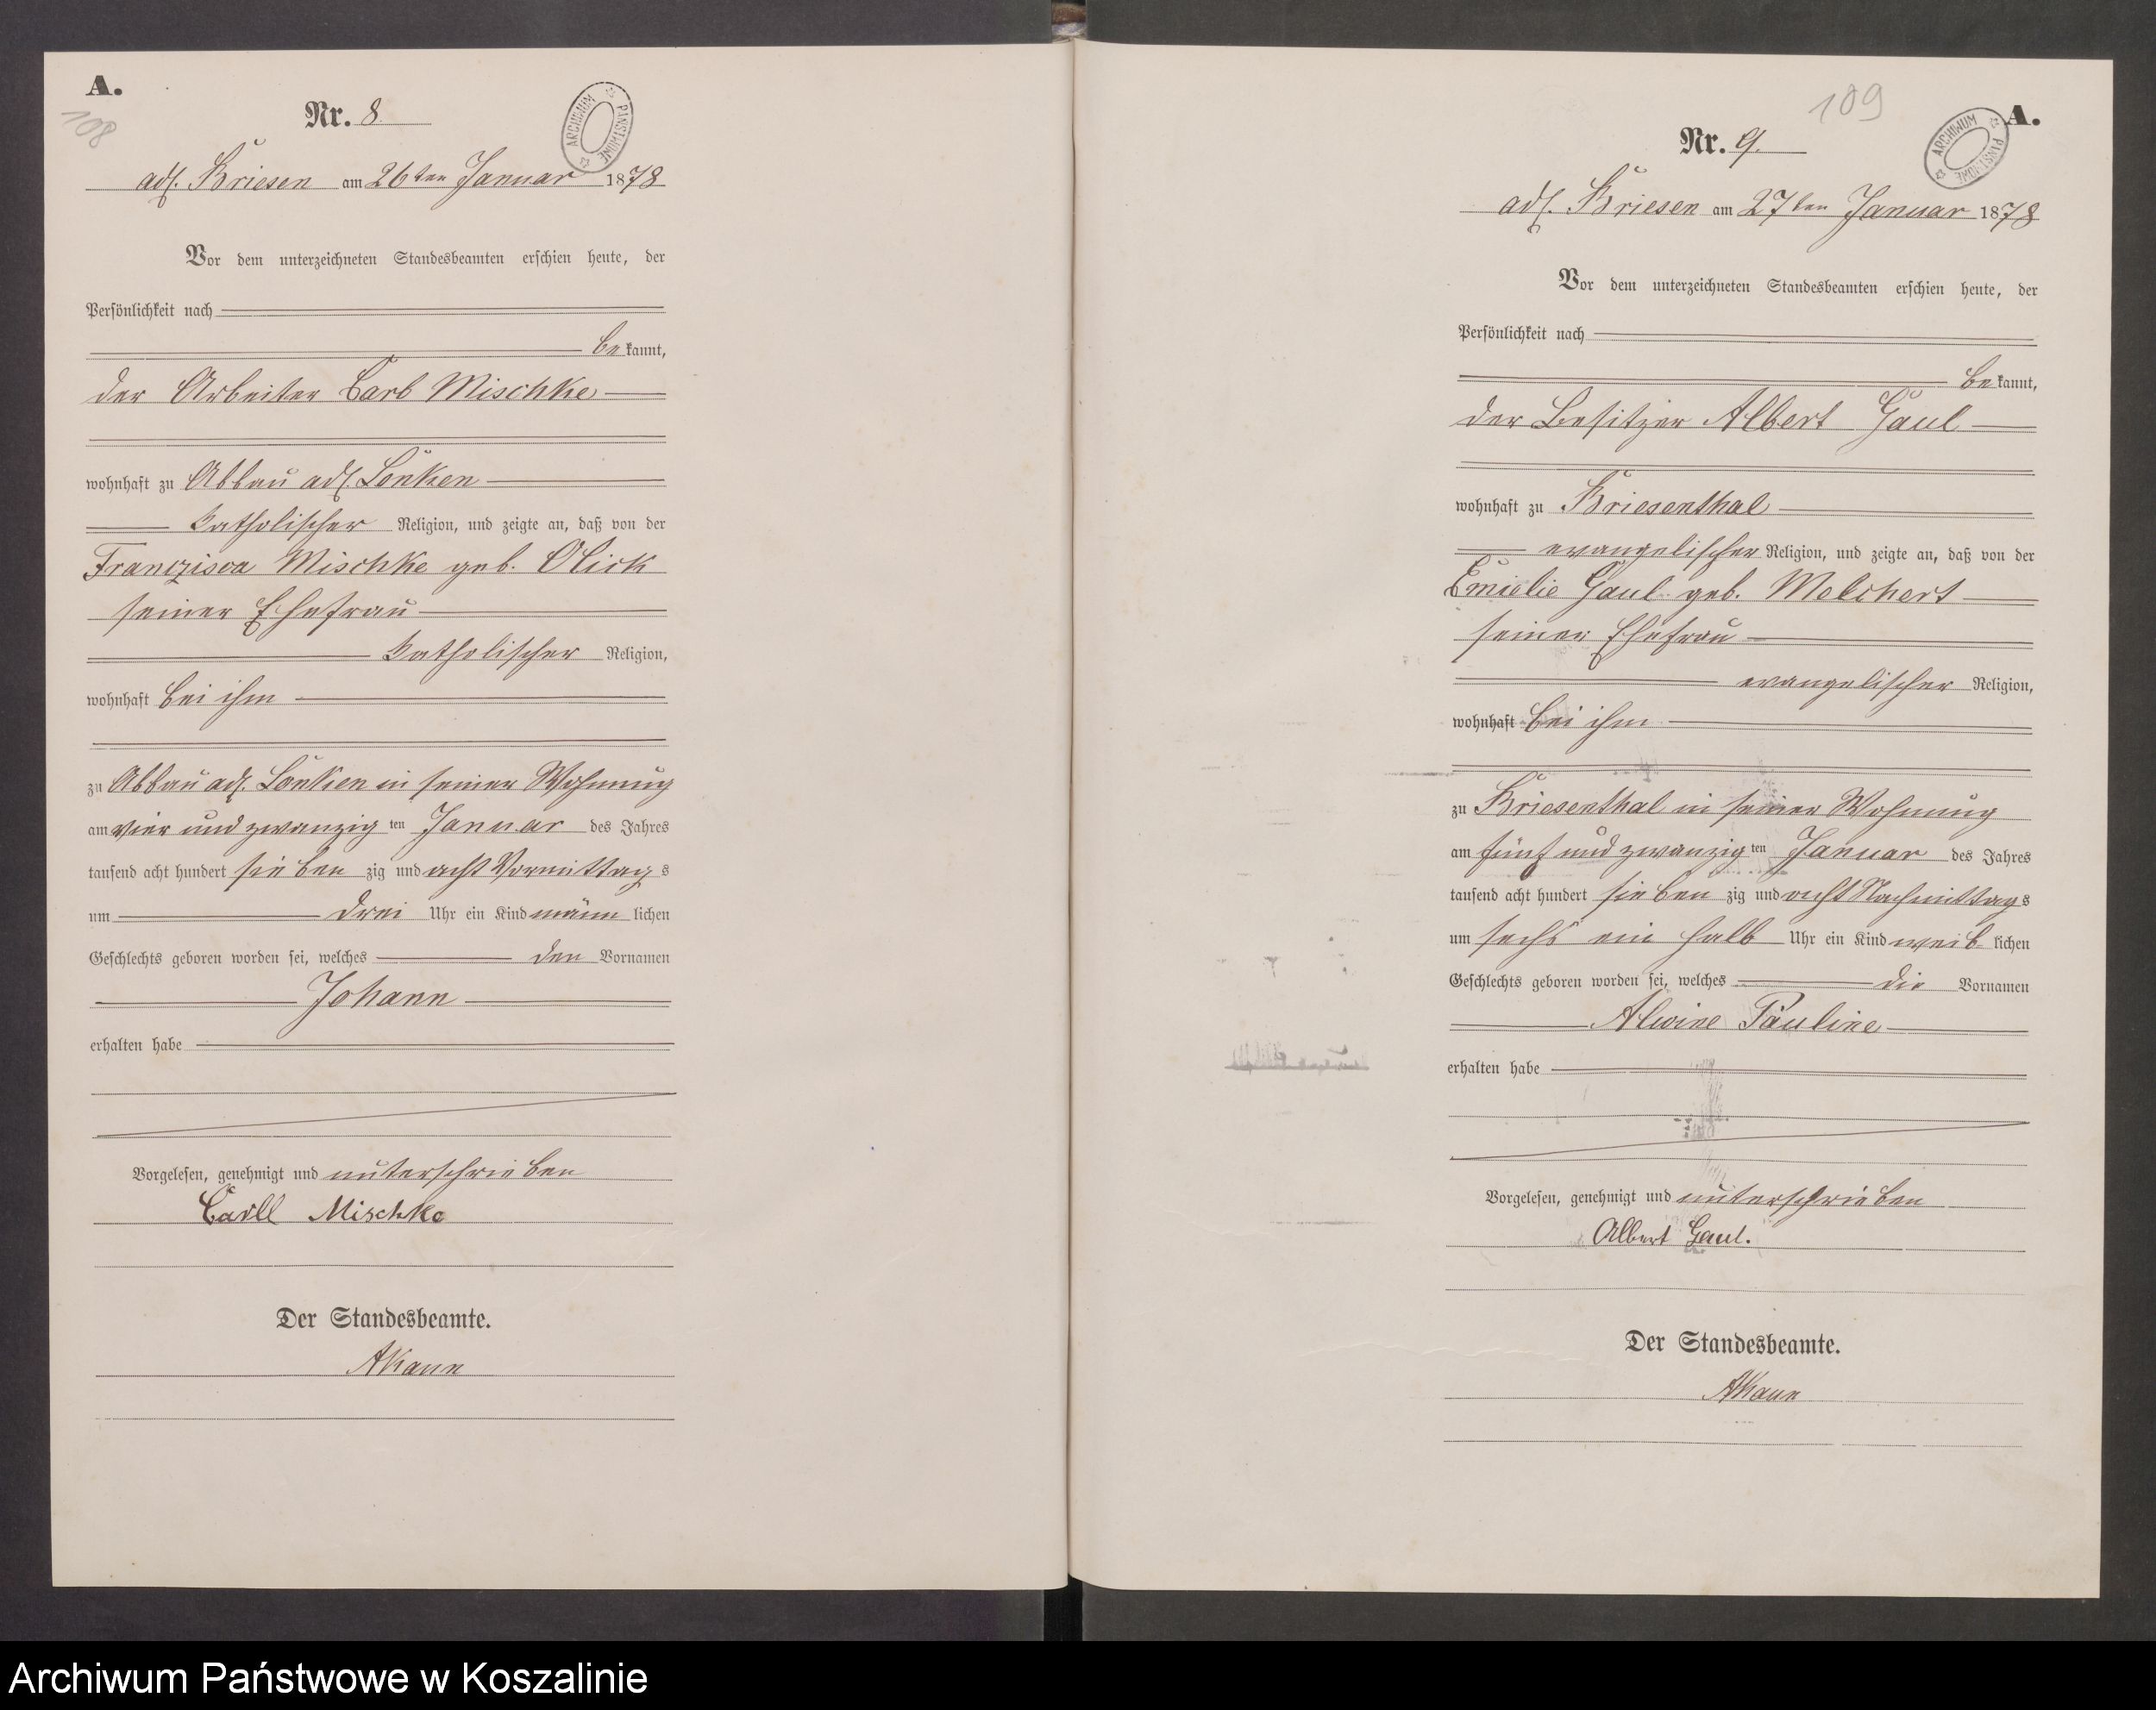 A.
108
Nr. 8.
ARCHIWUM PAŃSTWOWE
adl. Briesen am 26ten Januar 1878
Vor dem unterzeichneten Standesbeamten erschien heute, der
Persönlichkeit nach
bekannt,
der Arbeiter Carl Mischke
wohnhaft zu Abbau adl. Lonken
katholischer Religion, und zeigte an, daß von der
Franzisca Mischke geb. Olick
seiner Ehefrau
katholischer Religion,
wohnhaft bei ihm
zu Abbau adl. Lonken in seiner Wohnung
am vier und zwanzig ten Januar des Jahres
tausend acht hundert sieben zig und acht Vormittags
um drei Uhr ein Kind männ lichen
Geschlechts geboren worden sei, welches den Vornamen
Johann
erhalten habe
Vorgelesen, genehmigt und unterschrieben
Carll Mischke
Der Standesbeamte.
AKann
109
A.
Nr. 9.
ARCHIWUM PAŃSTWOWE
adl. Briesen am 27ten Januar 1878
Vor dem unterzeichneten Standesbeamten erschien heute, der
Persönlichkeit nach
bekannt,
der Besitzer Albert Gaul
wohnhaft zu Briesenthal
evangelischer Religion, und zeigte an, daß von der
Emielie Gaul geb. Melchert
seiner Ehefrau
evangelischer Religion,
wohnhaft bei ihm
zu Briesenthal in seiner Wohnung
am fünf und zwanzig ten Januar des Jahres
tausend acht hundert sieben zig und acht Nachmittags
um sechs ein halb Uhr ein Kind weib lichen
Geschlechts geboren worden sei, welches die Vornamen
Alwine Pauline
erhalten habe
Vorgelesen, genehmigt und unterschrieben
Albert Gaul.
Der Standesbeamte.
AKann
Archiwum Państwowe w Koszalinie